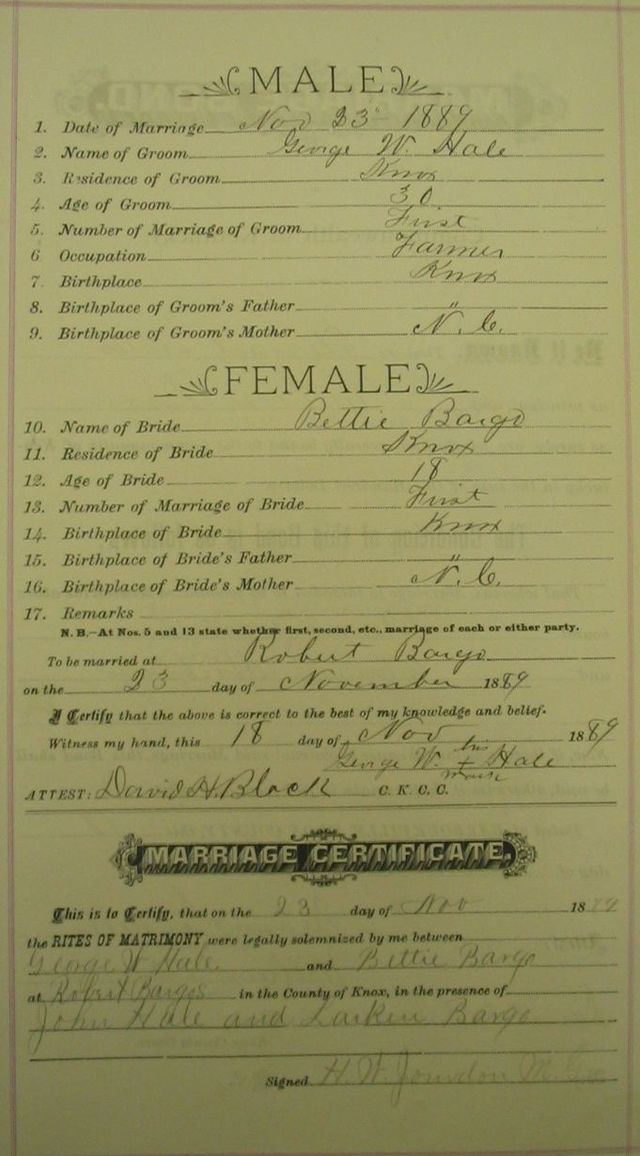 MALE
1. Date of Marriage Nov 23 1889
2. Name of Groom George W. Hale
3. Residence of Groom Knox
4. Age of Groom 30
5. Number of Marriage of Groom First
6 Occupation Farmer
7. Birthplace Knox
8. Birthplace of Groom's Father "
9. Birthplace of Groom's Mother N. C.
FEMALE
10. Name of Bride Bettie Bargo
11. Residence of Bride Knox
12. Age of Bride 18
13. Number of Marriage of Bride First
14. Birthplace of Bride Knox
15. Birthplace of Bride's Father "
16. Birthplace of Bride's Mother N. C.
17. Remarks
N. B.—At Nos. 5 and 13 state whether first, second, etc., marriage of each or either party.
To be married at Robert Bargo
on the 23 day of November 1889
I Certify that the above is correct to the best of my knowledge and belief.
Witness my hand, this 18 day of Nov 1889
George W. his + mark Hale
ATTEST: David H. Black C. K. C. C.
MARRIAGE CERTIFICATE.
This is to Certify, that on the 23 day of Nov 1889
the RITES OF MATRIMONY were legally solemnized by me between
George W Hale and Bettie Bargo
at Robert Bargos in the County of Knox, in the presence of
John Hale and Larkin Bargo
Signed H. W. Jourdon